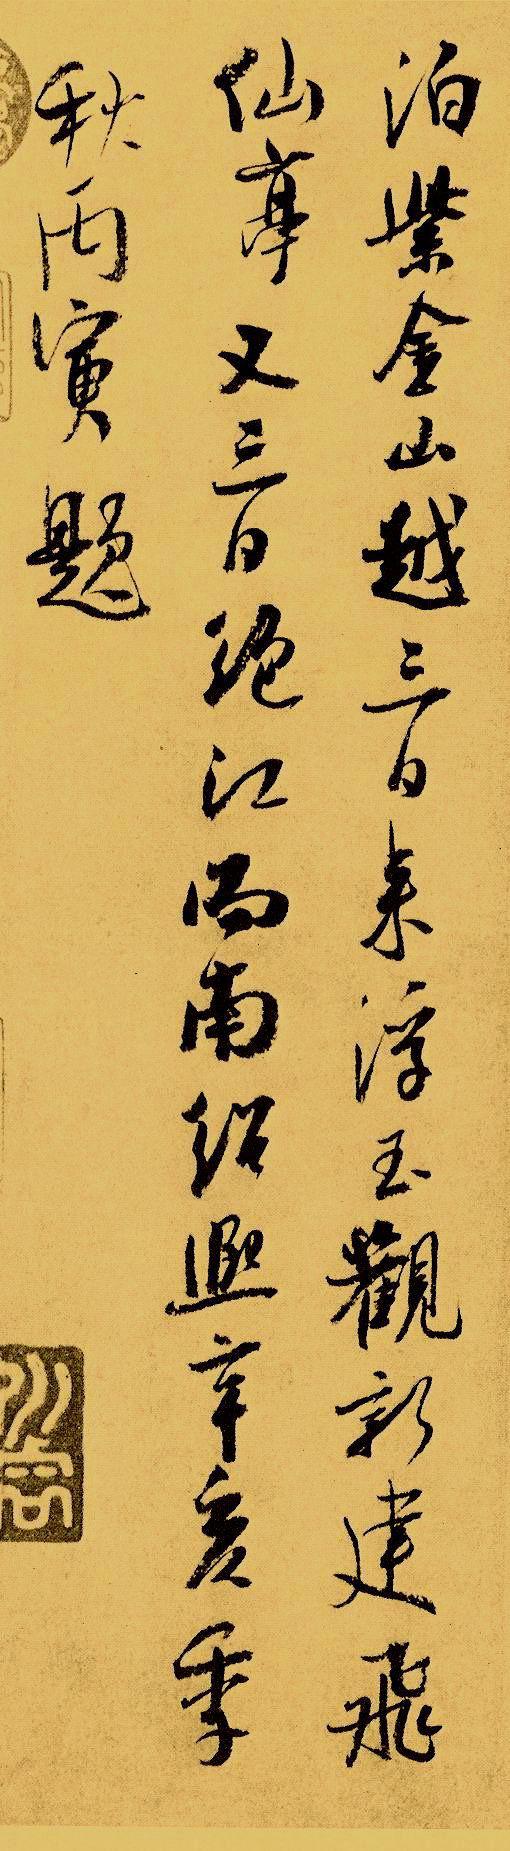 泊紫金山越三日来浮玉觀新建飛
仙亭又三日絶江而南紹熙辛亥季
秋丙寅題